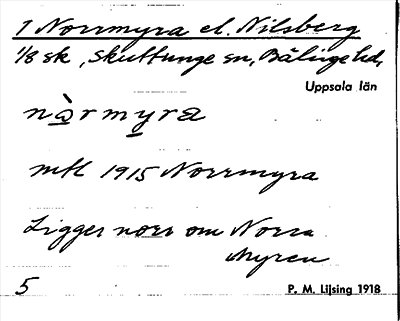 1 Norrmyra el. Nilsberg
1/8 sk, Skuttunge sn, Bälinge hd,
Uppsala län
nòrmyra
mtl 1915 Norrmyra
Ligger norr om Norra
Myren
5
P. M. Lijsing 1918